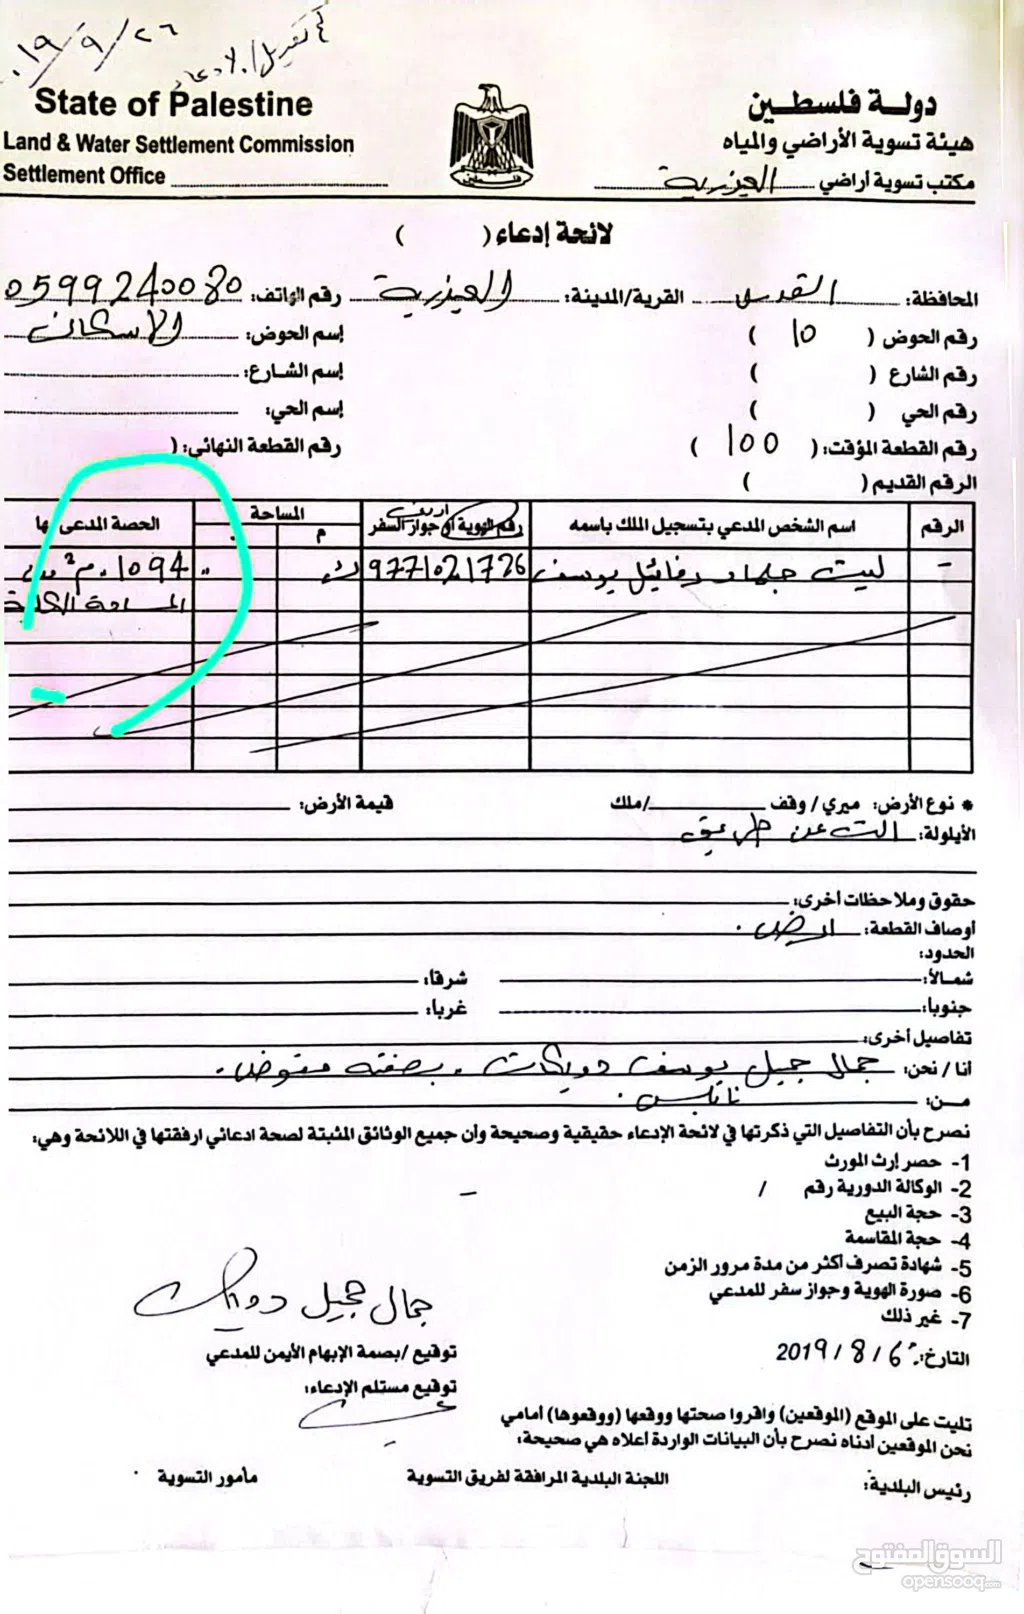 ٢٠١٩/٩/٢٦
تم تعديل الادعاء
State of Palestine
Land & Water Settlement Commission
Settlement Office
دولة فلسطين
هيئة تسوية الأراضي والمياه
مكتب تسوية أراضي العيزرية
لائحة إدعاء ( )
المحافظة: القدس القرية/المدينة: العيزرية رقم الهاتف: 0599240080
رقم الحوض ( 10 ) إسم الحوض: الاسكان
رقم الشارع ( ) إسم الشارع:
رقم الحي ( ) إسم الحي:
رقم القطعة المؤقت: ( 100 ) رقم القطعة النهائي: (
الرقم القديم ( )
الرقم اسم الشخص المدعي بتسجيل الملك باسمه رقم الهوية أو جواز السفر المساحة الحصة المدعى بها
م د
- ليث جلعاد رفائيل يوسف 9771021726 1094 م² من
المساحة الكلية
* نوع الأرض: ميري / وقف /ملك قيمة الأرض:
الأيلولة: الت عن طريق
حقوق وملاحظات أخرى:
أوصاف القطعة: ارض.
الحدود:
شمالاً: شرقا:
جنوبا: غربا:
تفاصيل أخرى:
أنا / نحن: جمال جميل يوسف دويكات. بصفته مفوض.
من: نابلس.
نصرح بأن التفاصيل التي ذكرتها في لائحة الإدعاء حقيقية وصحيحة وأن جميع الوثائق المثبتة لصحة ادعائي ارفقتها في اللائحة وهي:
1- حصر إرث المورث
2- الوكالة الدورية رقم / -
3- حجة البيع
4- حجة المقاسمة
5- شهادة تصرف أكثر من مدة مرور الزمن
6- صورة الهوية وجواز سفر للمدعي
7- غير ذلك
جمال جميل دويكات
التاريخ: 6 / 8 / 2019
توقيع /بصمة الإبهام الأيمن للمدعي
توقيع مستلم الإدعاء:
تليت على الموقع (الموقعين) واقروا صحتها ووقعها (ووقعوها) أمامي
نحن الموقعين أدناه نصرح بأن البيانات الواردة أعلاه هي صحيحة:
رئيس البلدية: اللجنة البلدية المرافقة لفريق التسوية مأمور التسوية
السوق المفتوح
opensooq.com